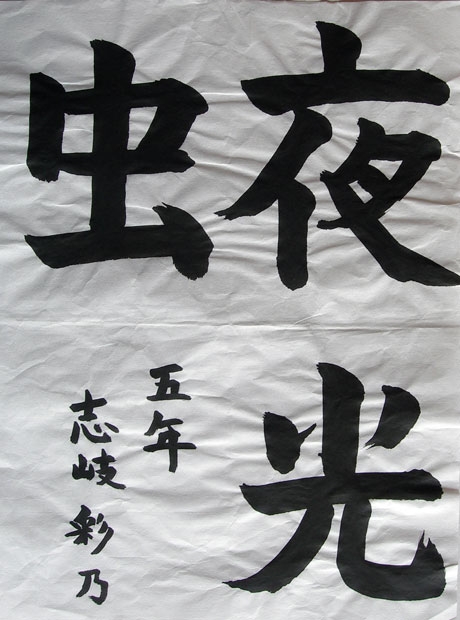 夜光
虫
五年
志岐彩乃